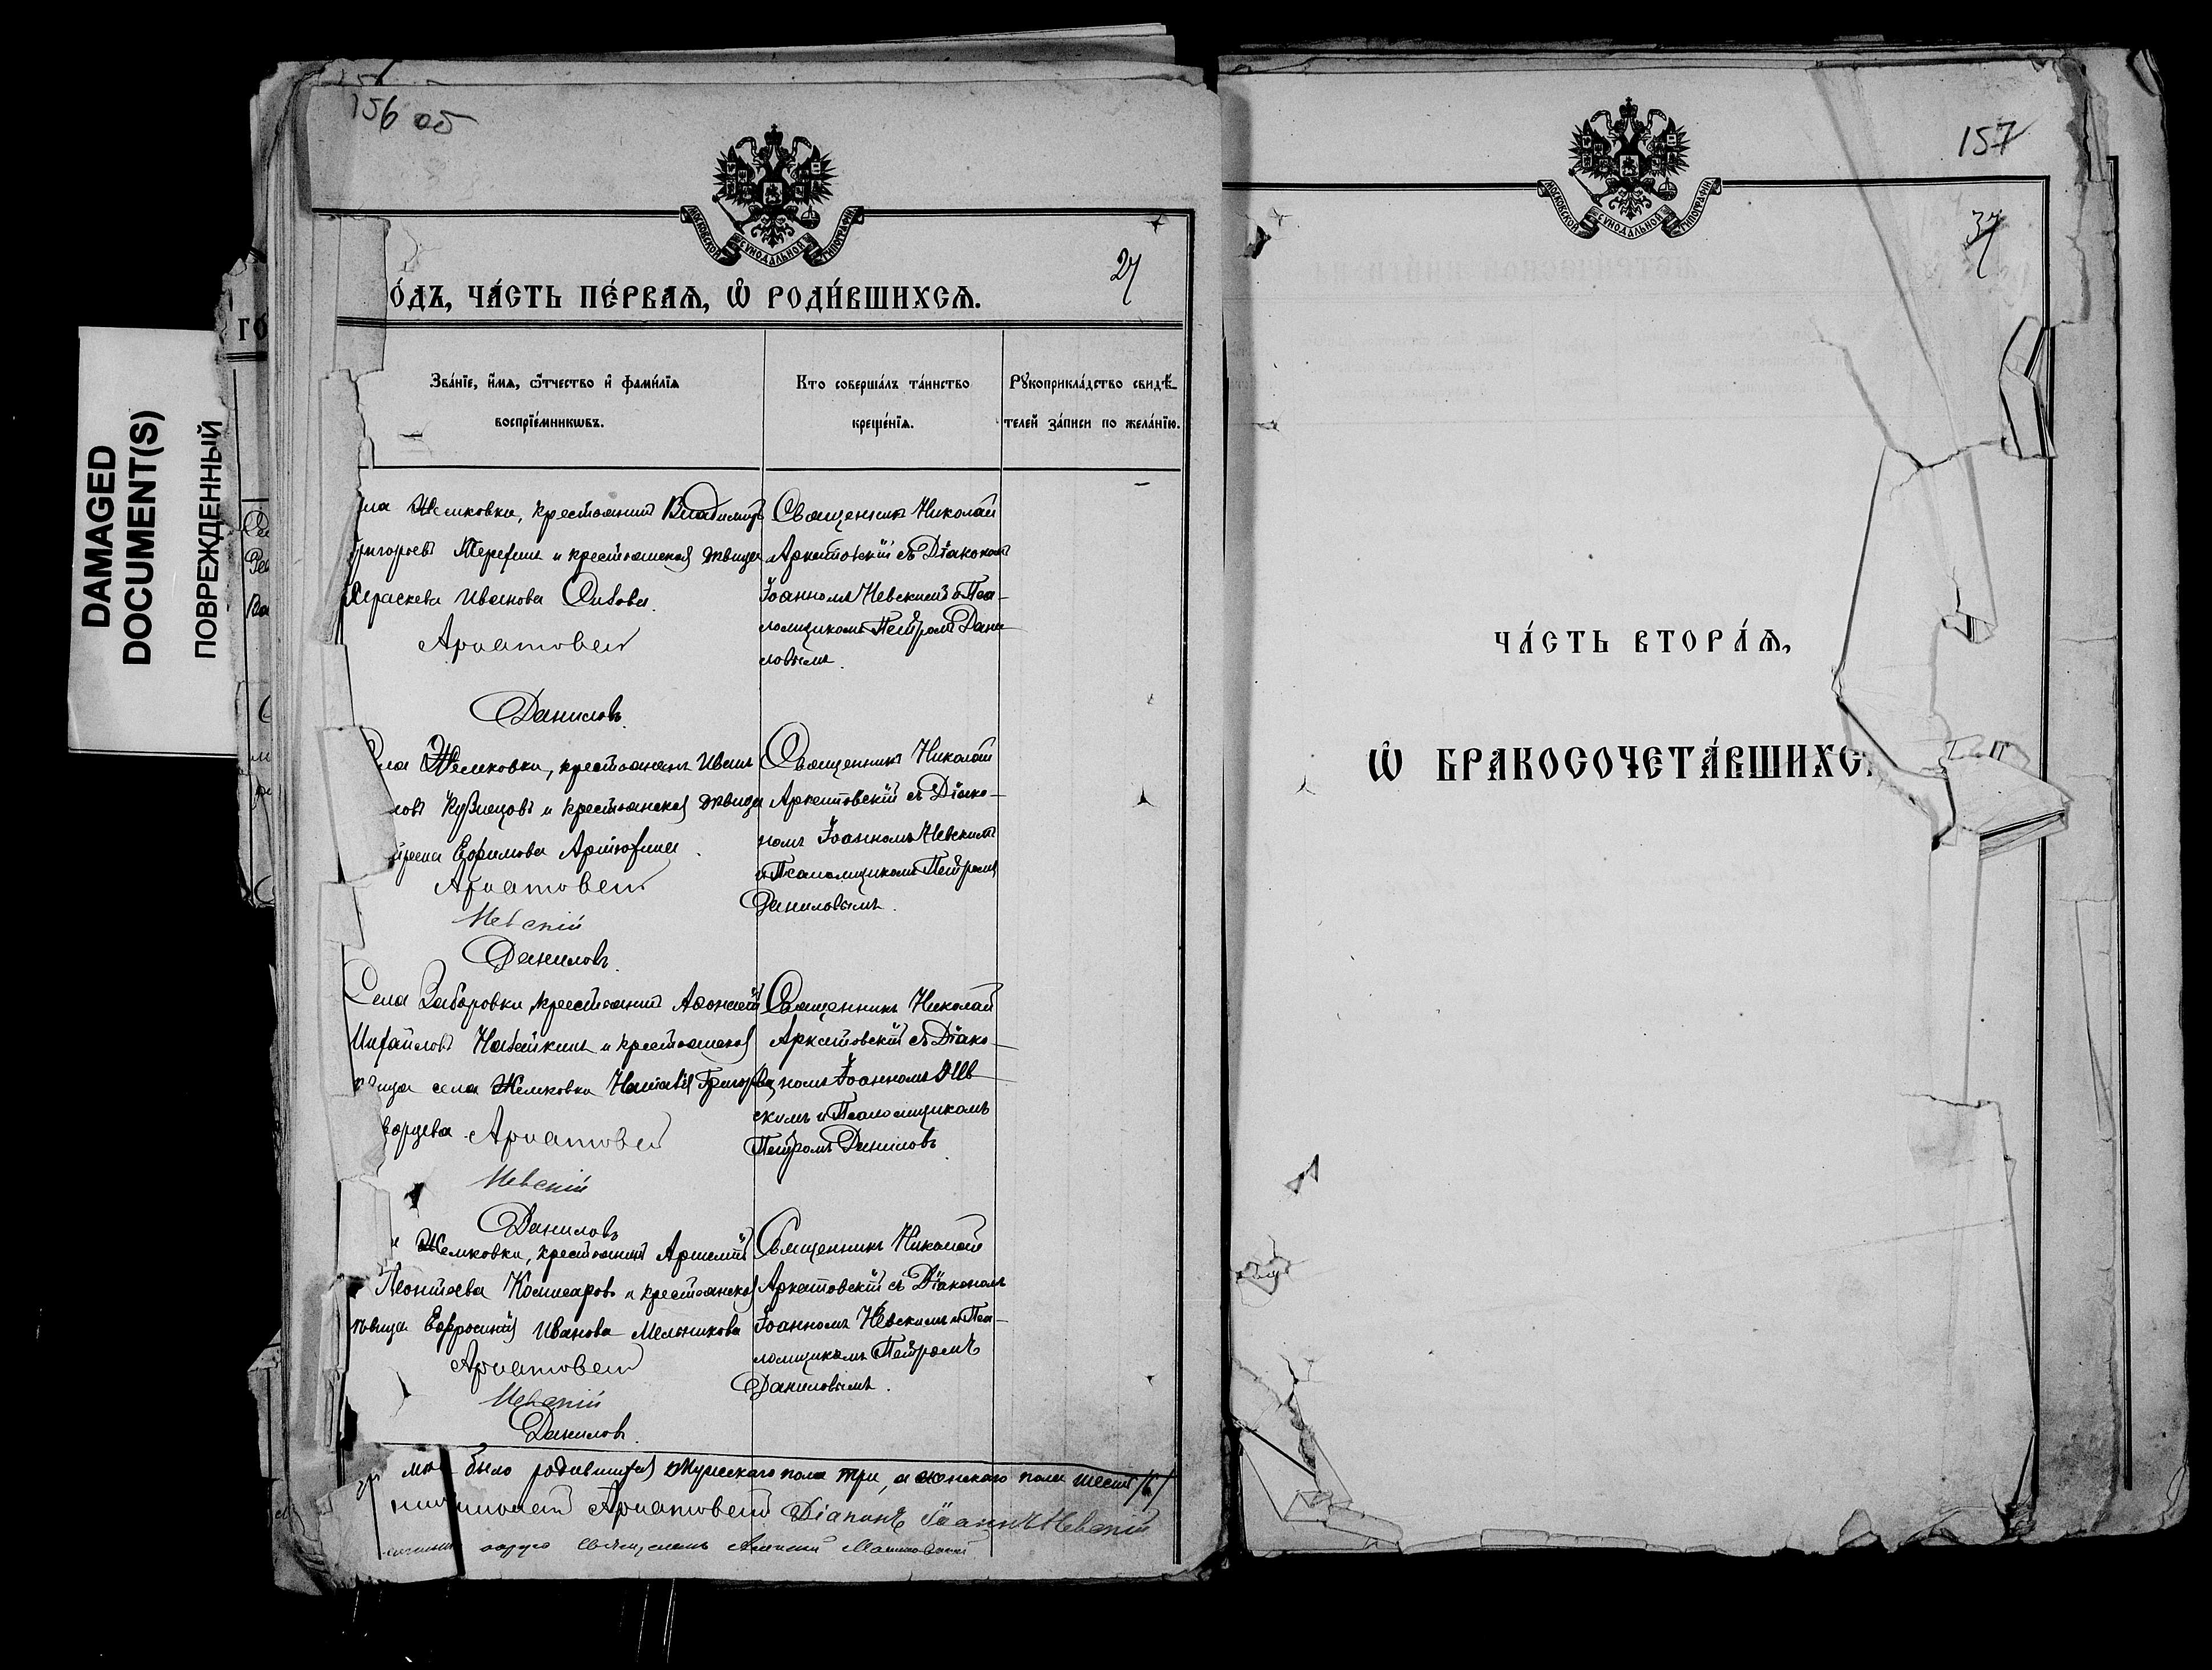 DAMAGED
DOCUMENT(S)
ПОВРЕЖДЕННЫЙ
156 об
МОСКОВСКОЙ СѴНОДАЛЬНОЙ ТИПОГРАФІИ
27
О́ДЪ, ЧА́СТЬ ПЕ́РВАѦ, Ѡ҆ РОДИ́ВШИХСѦ.
Зва́нїе, и҆́мѧ, ѻ҆́тчество и҆ фами́лїѧ
воспрїе́мникѡвъ.
Кто соверша́лъ та́инство
креще́нїѧ.
Рꙋкоприкла́дство свидѣ́-
телей за́писи по жела́нїю.
ла Жемковки, крестьянинъ Владимиръ
Григорьевъ Терехин и крестьянская дѣвица
Параскева Иванова Сивова.
Аркатовскій
Даниловъ.
Священникъ Николай
Аркатовскій съ Діакономъ
Іоанномъ Невскимъ и Пса-
ломщикомъ Петромъ Дани
ловымъ.
ла Жемковки, крестьянинъ Иванъ
ловъ Кузнецовъ и крестьянская дѣвица
Ефимова Артюхина.
Аркатовскій
Невскій
Даниловъ.
Священникъ Николай
Аркатовскій съ Діако-
номъ Іоанномъ Невскимъ
и Псаломщикомъ Петромъ
Даниловымъ.
Села Заборовки, крестьянинъ
Михайловъ и крестьянская
вица села Жемковки Наталія Григорьева
ворцева. Аркатовскій
Невскій
Даниловъ
Священникъ Николай
Аркатовскій съ Діако-
номъ Іоанномъ Нев
скимъ и Псаломщикомъ
Петромъ Даниловъ
Жемковки, крестьянинъ
Леонтьева Комисаровъ и крестьянская
дѣвица Ефросинія Иванова Мельникова
Аркатовскій
Невскій
Даниловъ.
Священникъ Николай
Аркатовскій съ Діакономъ
Іоанномъ Невскимъ и Пса-
ломщикомъ Петромъ
Даниловымъ.
было родившихся мужескаго пола три, а женскаго пола шесть /6/
Николай Аркатовскій Діаконъ Іоаннъ Невскій
157
МОСКОВСКОЙ СѴНОДАЛЬНОЙ ТИПОГРАФІИ
37
ЧА́СТЬ ВТОРА́Ѧ,
Ѡ҆ БРАКОСОЧЕТА́ВШИХС